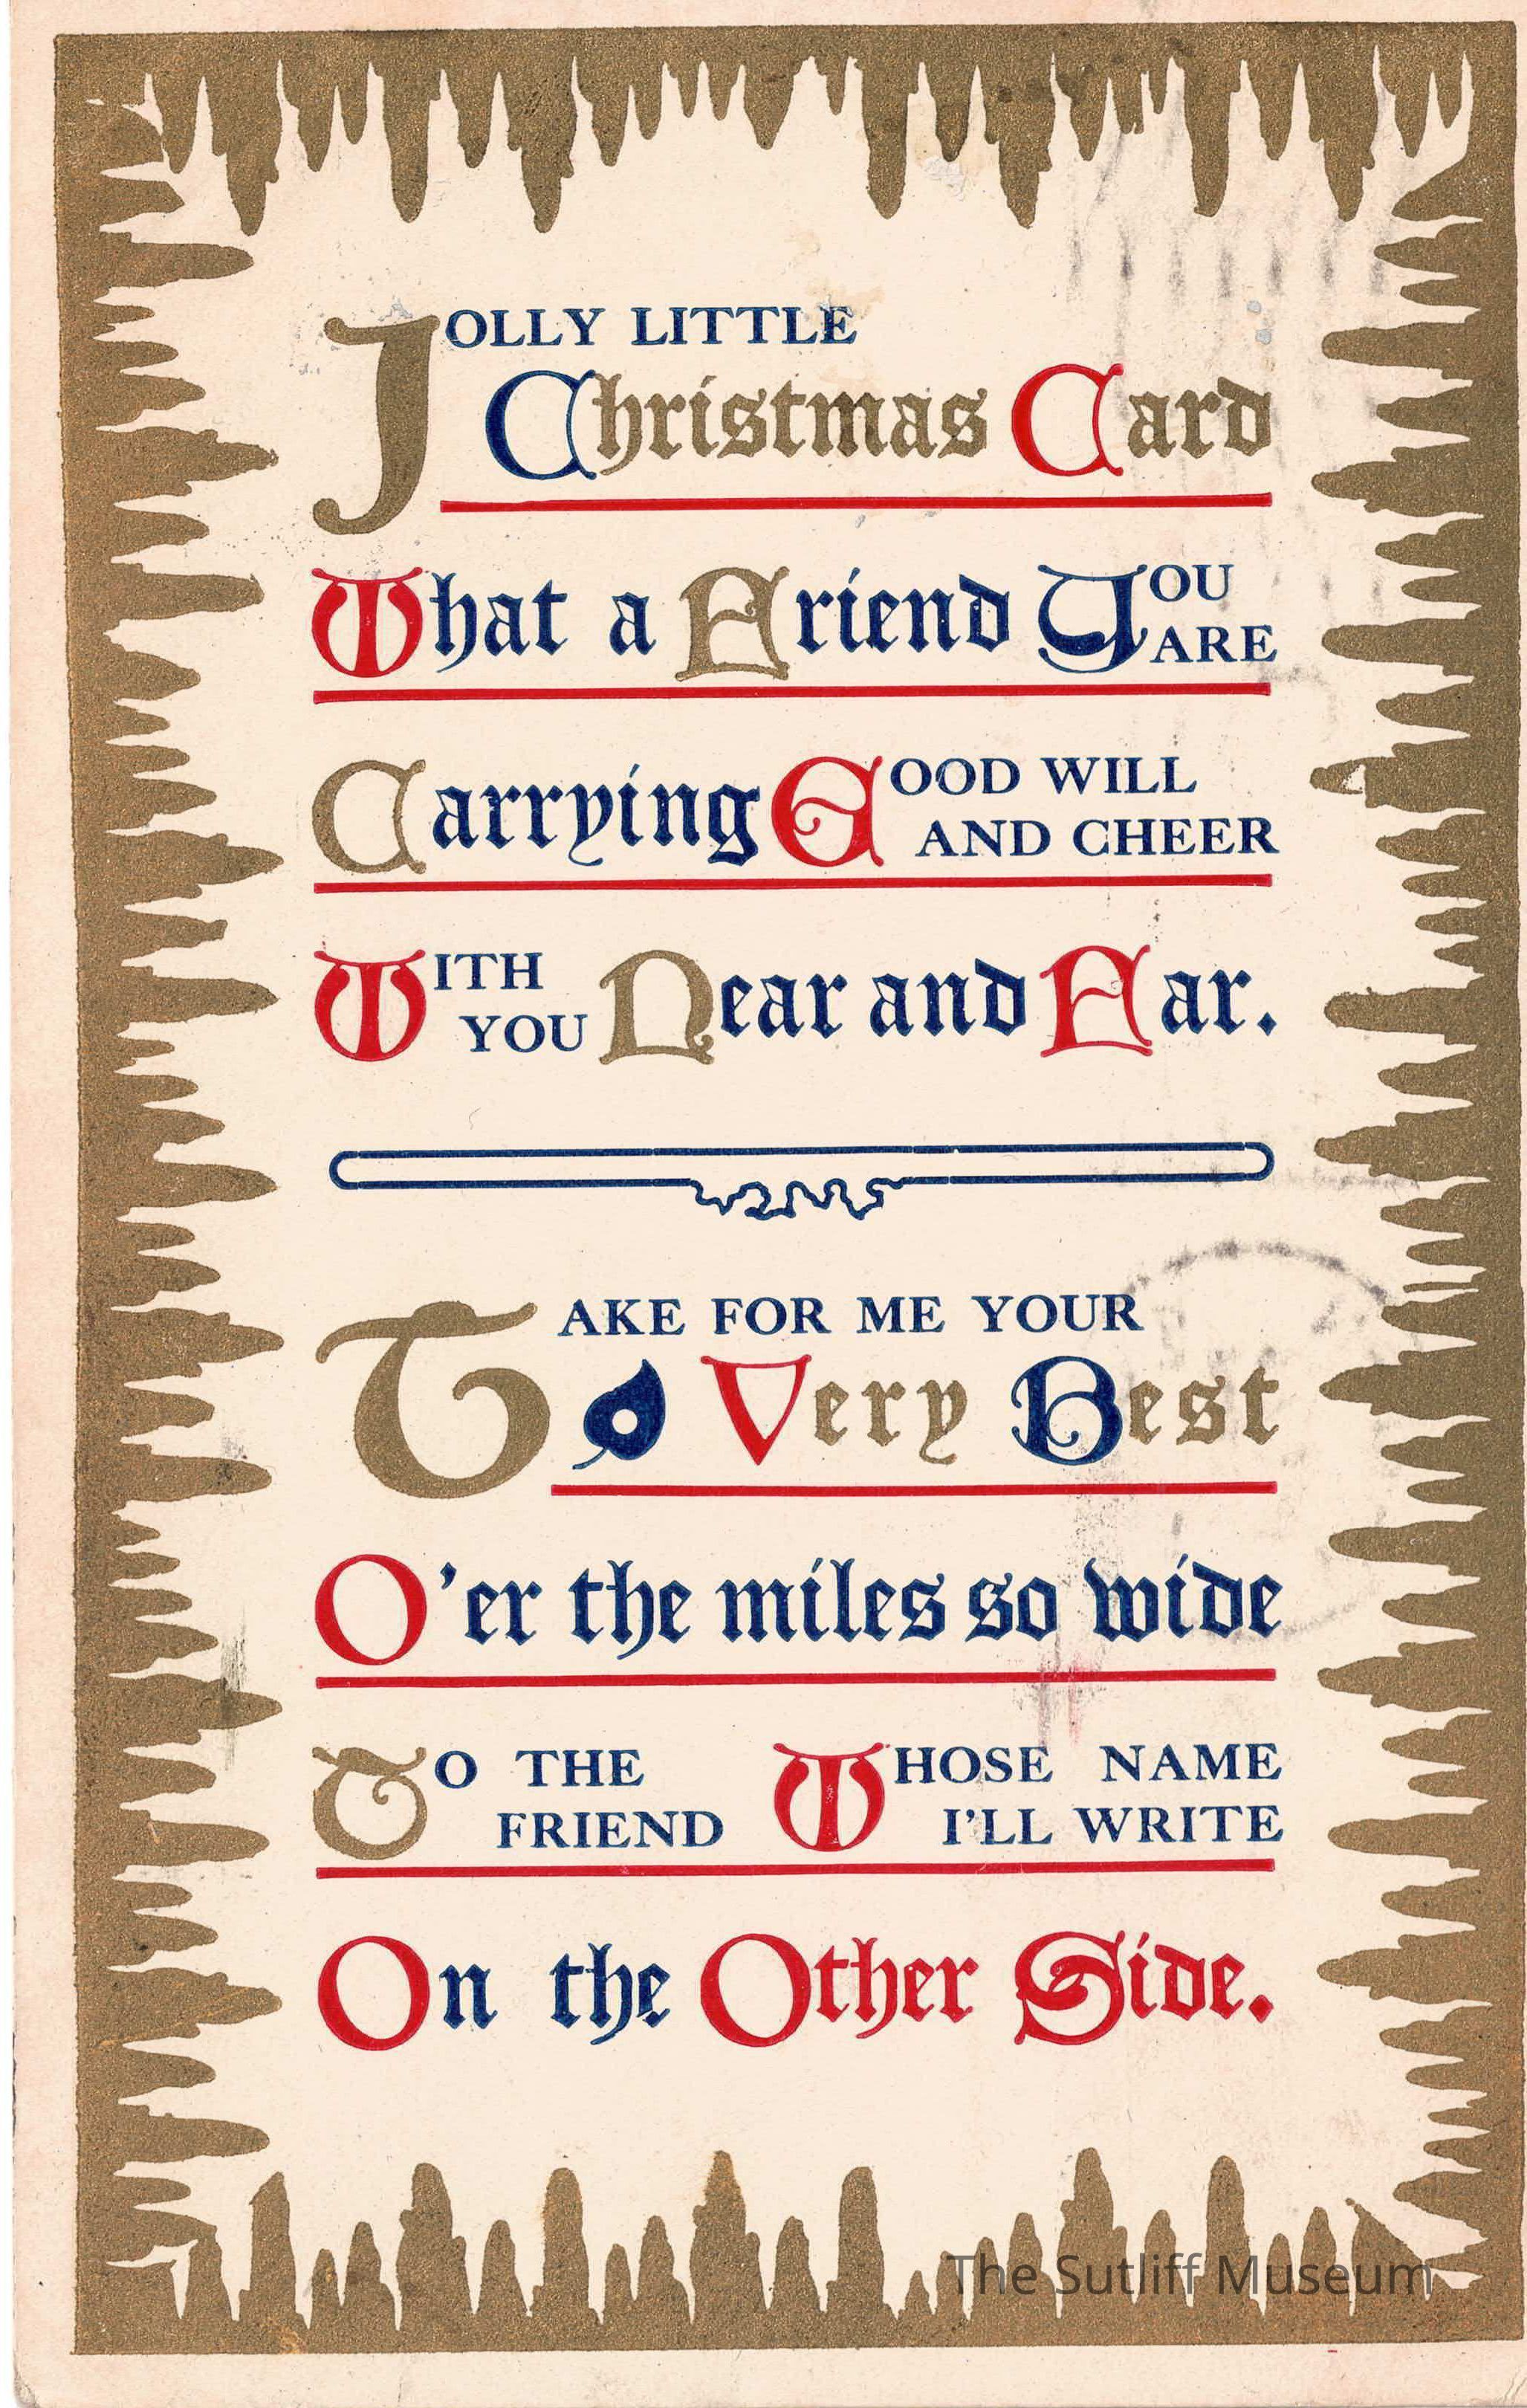 JOLLY LITTLE
Christmas Card
What a Friend YOU
ARE
Carrying GOOD WILL
AND CHEER
WITH
YOU Near and Far.
TAKE FOR ME YOUR
Very Best
O'er the miles so wide
TO THE
FRIEND
WHOSE NAME
I'LL WRITE
On the Other Side.
The Sutliff Museum